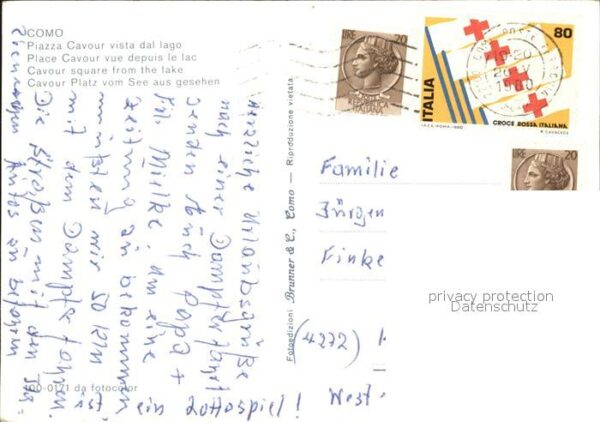 COMO
Piazza Cavour vista dal lago
Place Cavour vue depuis le lac
Cavour square from the lake
Cavour Platz vom See aus gesehen
Herzliche Urlaubsgrüße
nach einer Dampferfahrt
senden Euch Papa +
Frl. Um eine
Zeitung zu bekommen
mußten wir 50 km
mit dem Dampfer fahren.
Die Straßen mit den
Autos zu befahren
ist ein Lottospiel!
100-0171 da fotocolor
Fotoedizioni Brunner & C., Como – Riproduzione vietata
LIRE 20
ITALIA
80
I.P.Z.S. ROMA-1980
CROCE ROSSA ITALIANA
1980
20
Familie
Jürgen
Finke
(4272)
West-
privacy protection
Datenschutz